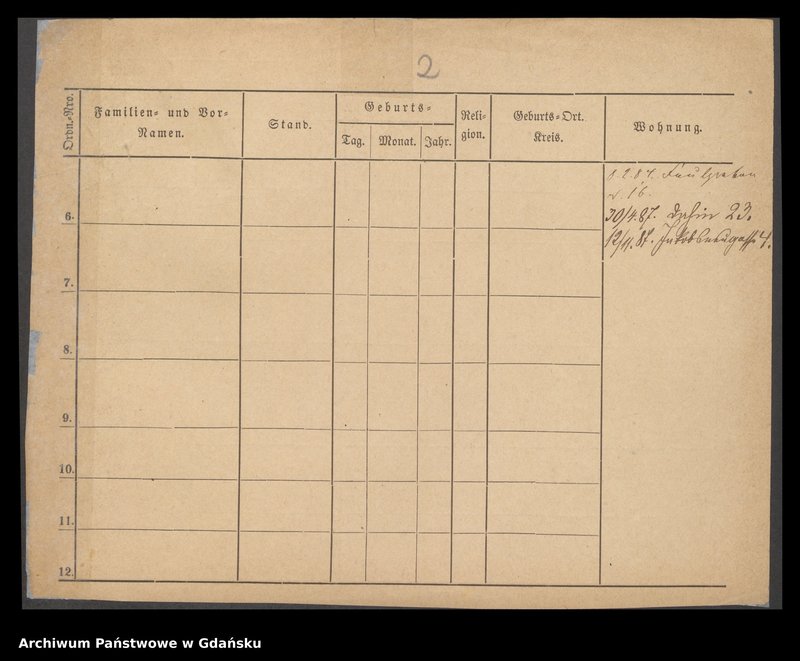 2
Ordn.-Nro.
Familien- und Vor-
Namen.
Stand.
Geburts-
Tag.
Monat.
Jahr.
Reli-
gion.
Geburts-Ort.
Kreis.
Wohnung.
8.2.87. Faulgraben
16.
30/4.87. 23.
12/11.87. Jakobsneugasse 4.
6.
7.
8.
9.
10.
11.
12.
Archiwum Państwowe w Gdańsku